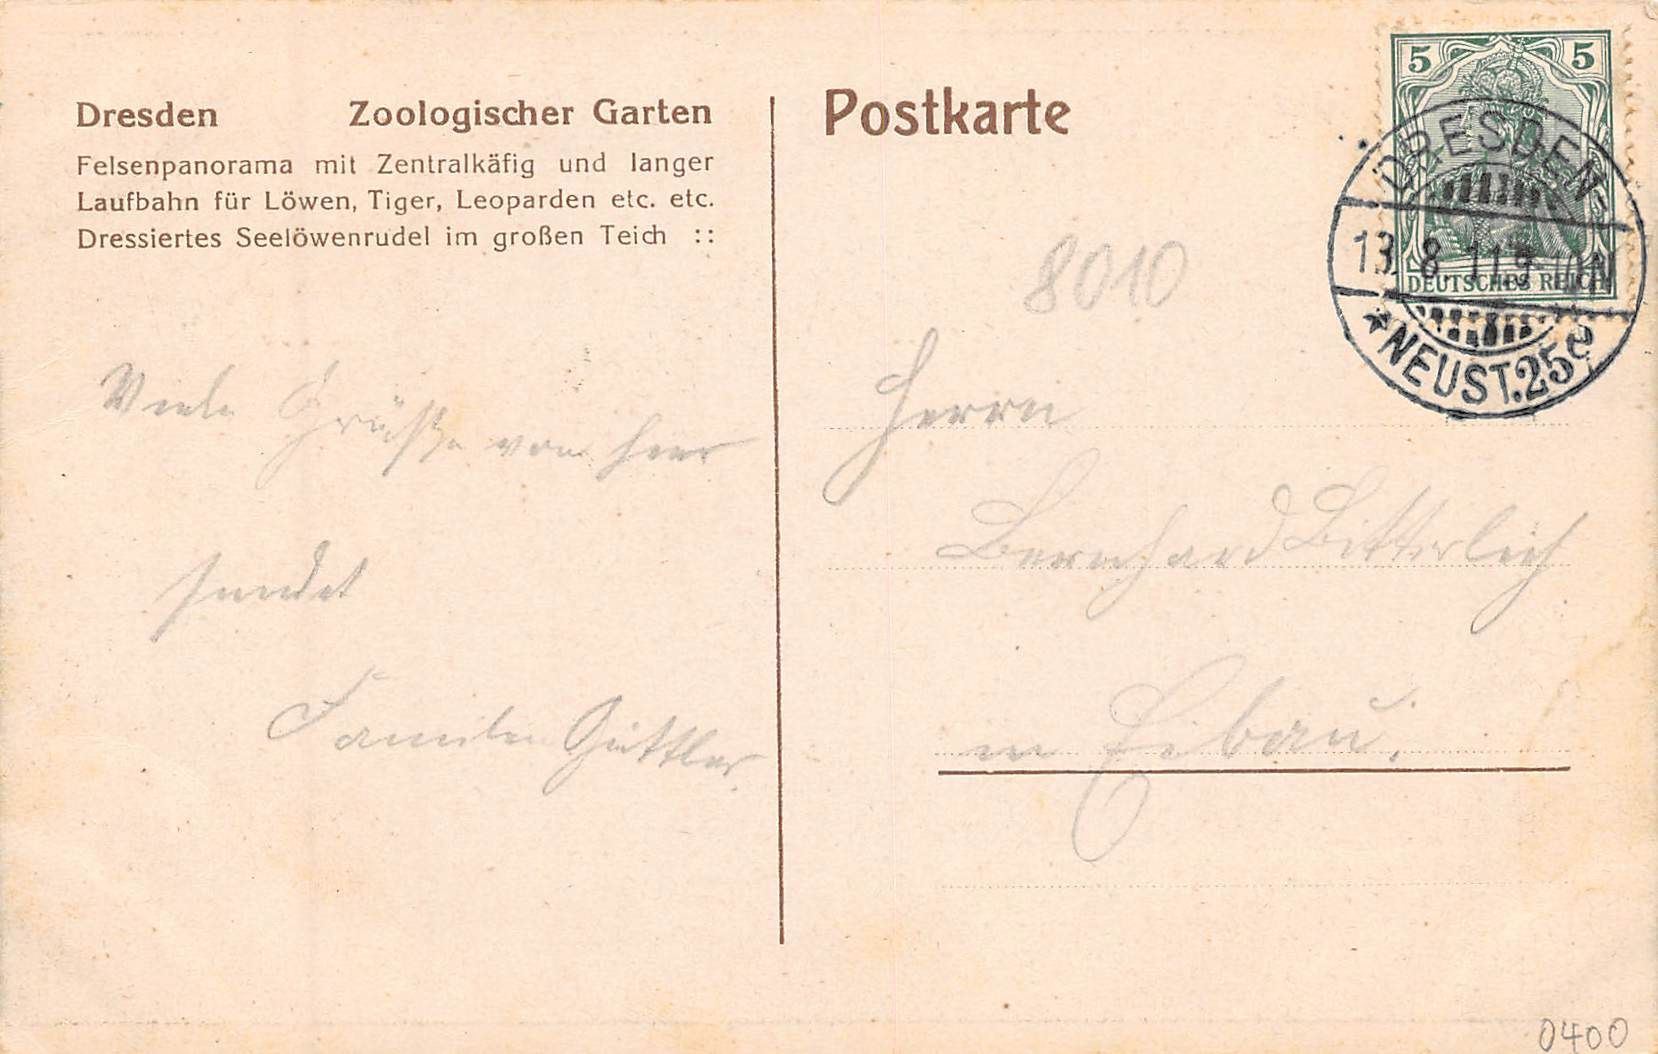 Dresden Zoologischer Garten
Felsenpanorama mit Zentralkäfig und langer
Laufbahn für Löwen, Tiger, Leoparden etc. etc.
Dressiertes Seelöwenrudel im großen Teich ::
Viele Grüße von hier
sendet
Familie Güttler
Postkarte
8010
Herrn
Bernhard Bitterlich
in Eibau.
5 5
DEUTSCHES REICH
DRESDEN-
13. 8. 11. 9-10N
*NEUST.25e
0400